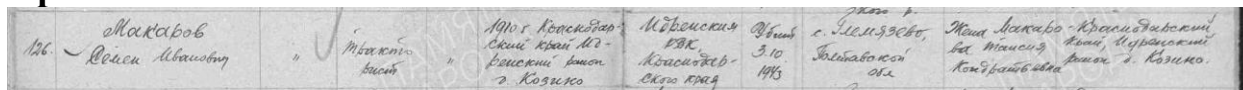 126. Макаров
Семен Иванович
"
Тракто
рист
"
1910 г. Краснодар-
ский край Ид-
ренский район
д. Козино
Идренским
РВК,
Краснодар-
ского края
Убит
3.10.
1943
с. Гельмязево,
Полтавской
обл
Жена Макаро-
ва Таисия
Кондратьевна
Краснодарский
край, Идренский
район д. Козино.